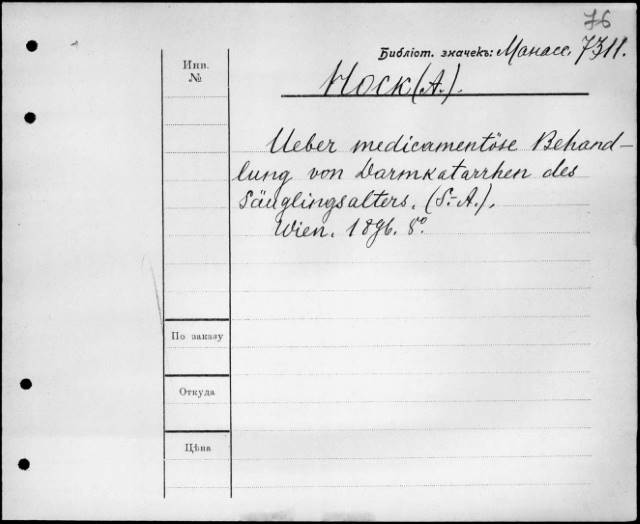 76
Библіот. значекъ: Манасс. 7311.
Инв.
№
Hock (A.).
Ueber medicamentöse Behand-
lung von Darmkatarrhen des
Säuglingsalters. (S.-A.).
Wien. 1896. 8°.
По заказу
Откуда
Цѣна